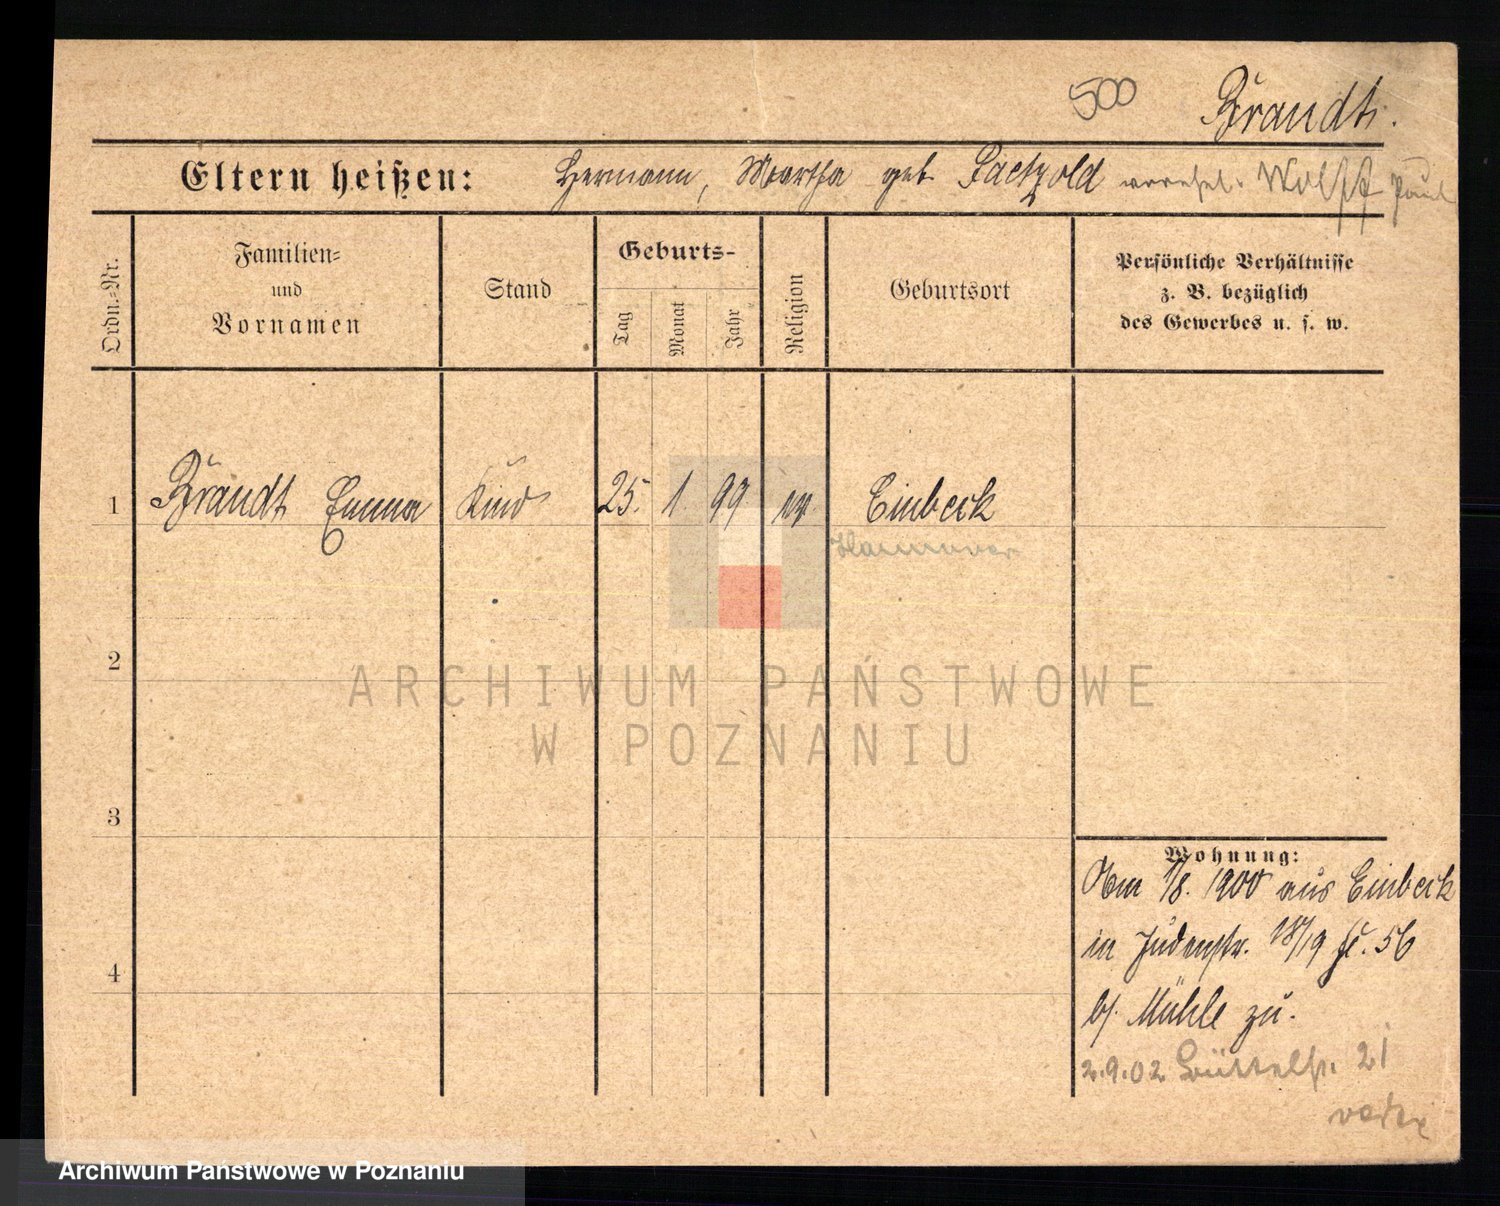 500 Brandt.
Eltern heißen: Hermann, Martha geb. Paetzold verehel. Wolff Paul
Ordn.=Nr.
Familien=
und
Vornamen
Stand
Geburts-
Tag
Monat
Jahr
Religion
Geburtsort
Persönliche Verhältnisse
z. B. bezüglich
des Gewerbes u. s. w.
1 Brandt Emma Kind 25. 1. 99 ev. Einbeck
Hannover
2
3
4
Wohnung:
Am 1/8. 1900 aus Einbeck
in Judenstr. 18/19 56
b/ Mühle zu.
2.9.02 Büttelstr. 21
ARCHIWUM PAŃSTWOWE
W POZNANIU
Archiwum Państwowe w Poznaniu